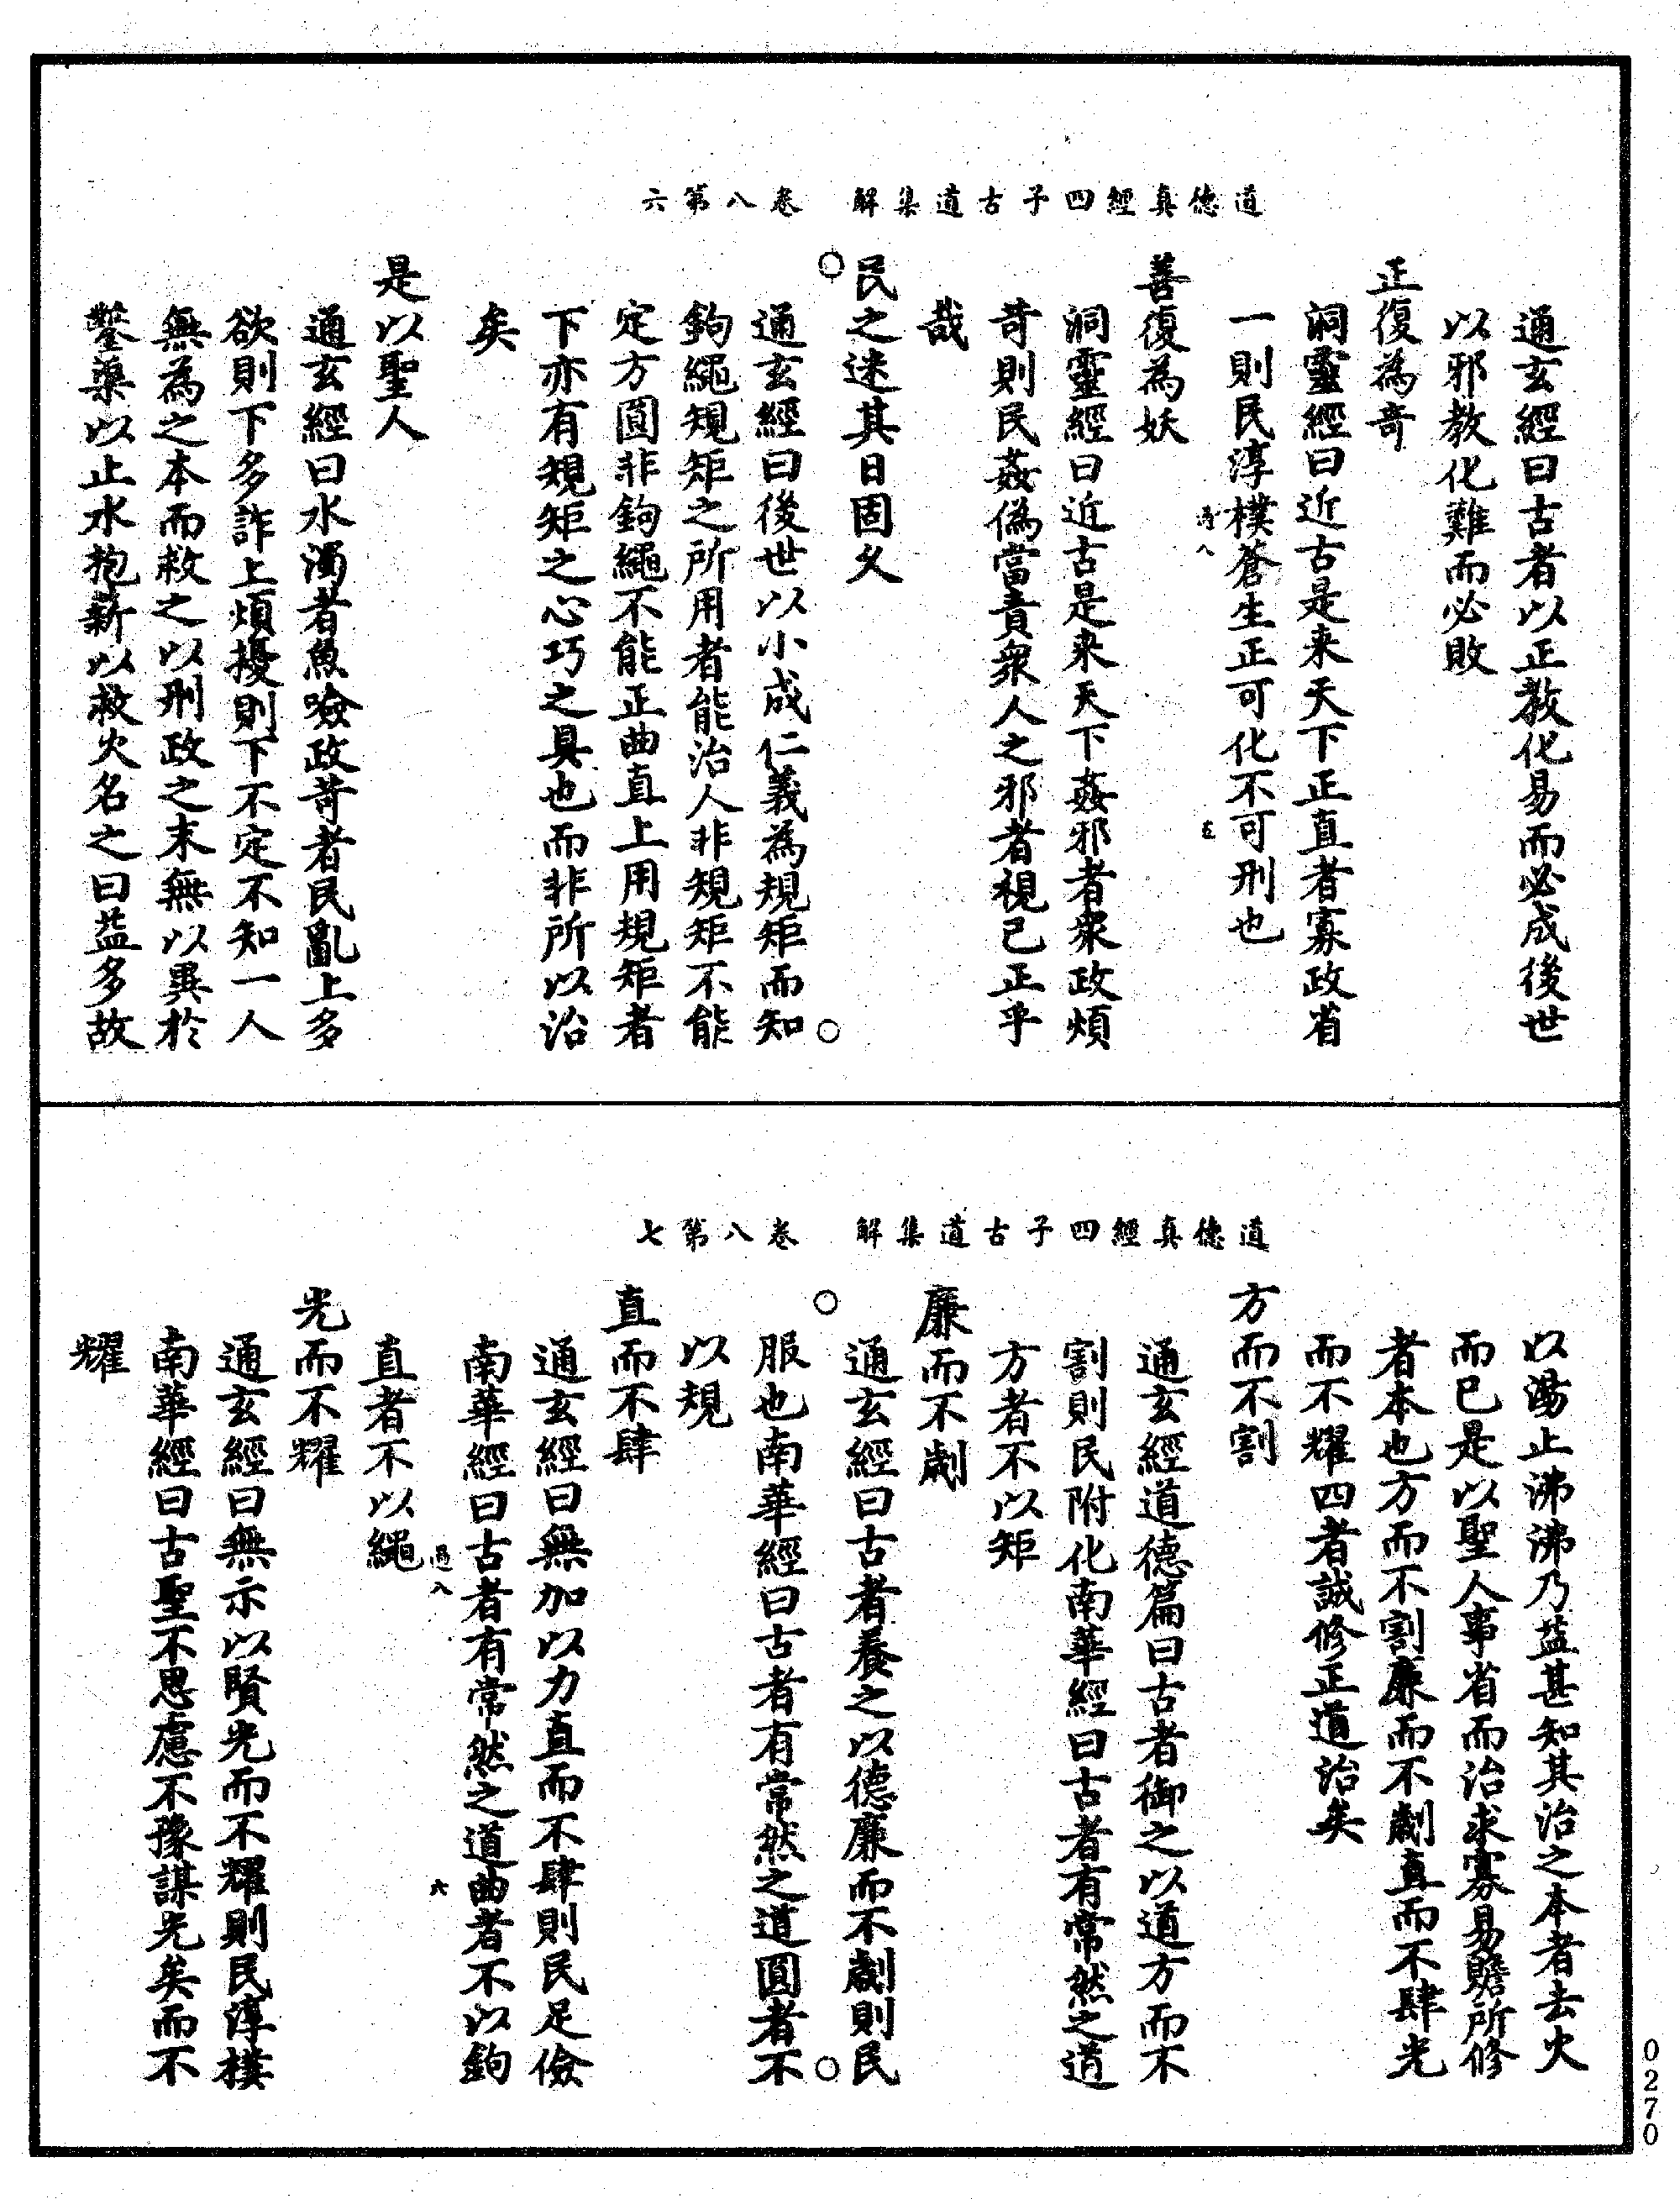 道德真經四子古道集解　卷八第六
通玄經曰古者以正教化易而必成後世
以邪教化難而必敗
正復為奇
洞靈經曰近古是来天下正直者寡政省
一則民淳樸蒼生正可化不可刑也
善復為妖
洞靈經曰近古是来天下姦邪者衆政煩
苛則民姦偽當責衆人之邪者視已正乎
哉
民之迷其日固久
通玄經曰後世以小成仁義為規矩而知
鉤繩規矩之所用者能治人非規矩不能
定方圓非鉤繩不能正曲直上用規矩者
下亦有規矩之心巧之具也而非所以治
矣
是以聖人
通玄經曰水濁者魚噞政苛者民亂上多
欲則下多詐上煩擾則下不定不知一人
無為之本而救之以刑政之末無以異於
鑿渠以止水抱薪以救火名之曰益多故
道德真經四子古道集解　卷八第七
以湯止沸沸乃益甚知其治之本者去火
而已是以聖人事省而治求寡易贍所修
者本也方而不割廉而不劌直而不肆光
而不耀四者誠修正道治矣
方而不割
通玄經道德篇曰古者御之以道方而不
割則民附化南華經曰古者有常然之道
方者不以矩
廉而不劌
通玄經曰古者養之以德廉而不劌則民
服也南華經曰古者有常然之道圓者不
以規
直而不肆
通玄經曰無加以力直而不肆則民足儉
南華經曰古者有常然之道曲者不以鉤
直者不以繩
八
六
光而不耀
通玄經曰無示以賢光而不耀則民淳樸
南華經曰古聖不思慮不豫謀光矣而不
耀
0270